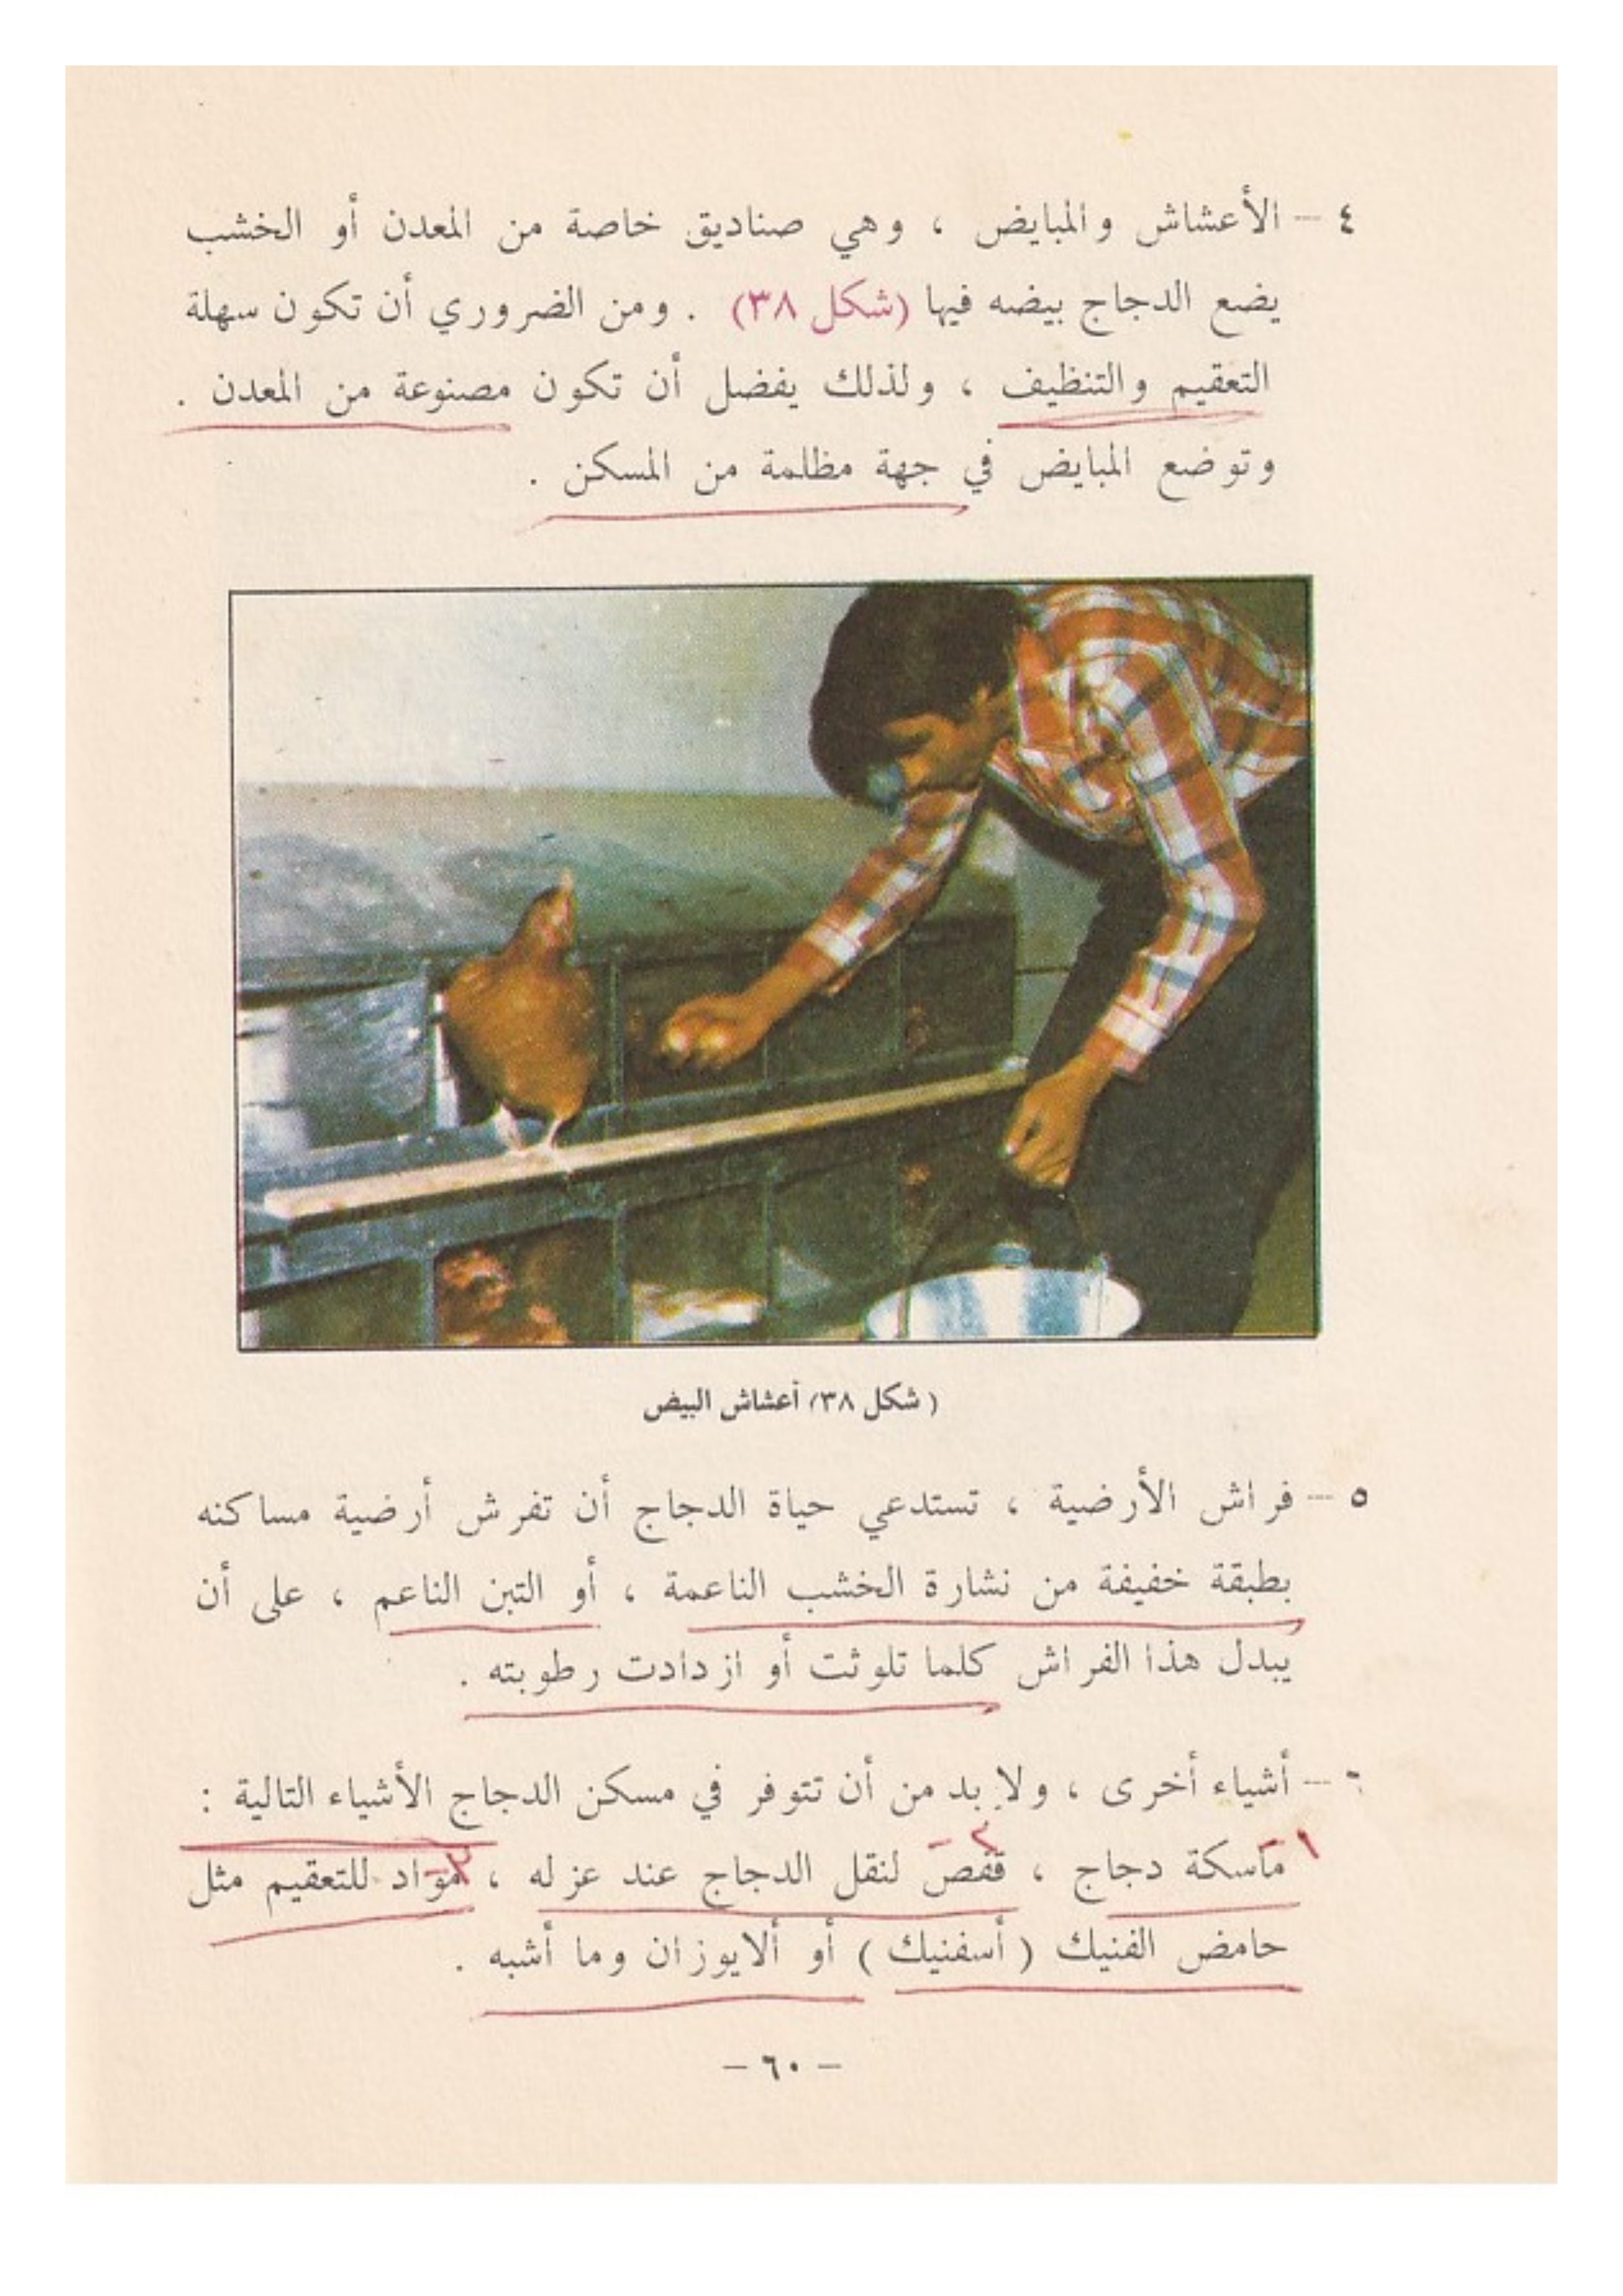 ٤ — الأعشاش والمبايض ، وهي صناديق خاصة من المعدن أو الخشب
يضع الدجاج بيضه فيها (شكل ٣٨) . ومن الضروري أن تكون سهلة
التعقيم والتنظيف ، ولذلك يفضل أن تكون مصنوعة من المعدن .
وتوضع المبايض في جهة مظلمة من المسكن .
( شكل ٣٨/ أعشاش البيض
٥ — فراش الأرضية ، تستدعي حياة الدجاج أن تفرش أرضية مساكنه
بطبقة خفيفة من نشارة الخشب الناعمة ، أو التبن الناعم ، على أن
يبدل هذا الفراش كلما تلوثت أو ازدادت رطوبته .
٦ — أشياء أخرى ، ولا بد من أن تتوفر في مسكن الدجاج الأشياء التالية :
١ — ٢ — ٣ —
ماسكة دجاج ، قفص لنقل الدجاج عند عزله ، مواد للتعقيم مثل
حامض الفنيك ( أسفنيك ) أو ألايوزان وما أشبه .
— ٦٠ —